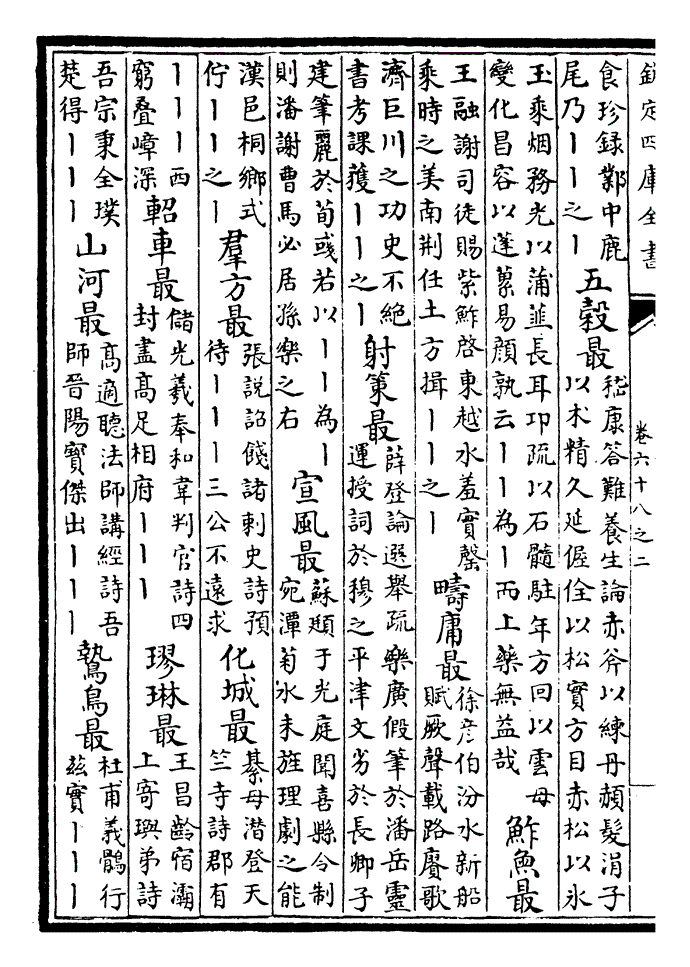 欽定四庫全書
卷六十八之二
食珍録鄴中鹿
尾乃丨丨之丨
五穀最
嵇康答難養生論赤斧以練丹赬髮涓子
以术精久延偓佺以松實方目赤松以水
玉乘烟務光以蒲韭長耳卭疏以石髓駐年方回以雲母
變化昌容以蓬蔂易顔孰云丨丨為丨而上藥無益哉
鮓魚最
王融謝司徒賜紫鮓啓東越水羞實罄
乘時之美南荆任土方揖丨丨之丨
疇庸最
徐彦伯汾水新船
賦厥聲載路賡歌
濟巨川之功史不絶
書考課獲丨丨之丨
射策最
薛登論選舉疏樂廣假筆於潘岳靈
運授詞於穆之平津文劣於長卿子
建筆麗於荀彧若以丨丨為丨
則潘謝曹馬必居孫樂之右
宣風最
蘇頲于光庭聞喜縣令制
宛潭菊水未旌理劇之能
漢邑桐鄉式
佇丨丨之丨
羣方最
張説詔餞諸刺史詩預
待丨丨丨三公不遠求
化城最
綦母潛登天
竺寺詩郡有
丨丨丨西
窮叠嶂深
軺車最
儲光羲奉和韋判官詩四
封盡高足相府丨丨丨
璆琳最
王昌齡宿灞
上寄璵弟詩
吾宗秉全璞
楚得丨丨丨
山河最
高適聽法師講經詩吾
師晉陽寶傑出丨丨丨
鷙鳥最
杜甫義鶻行
兹實丨丨丨